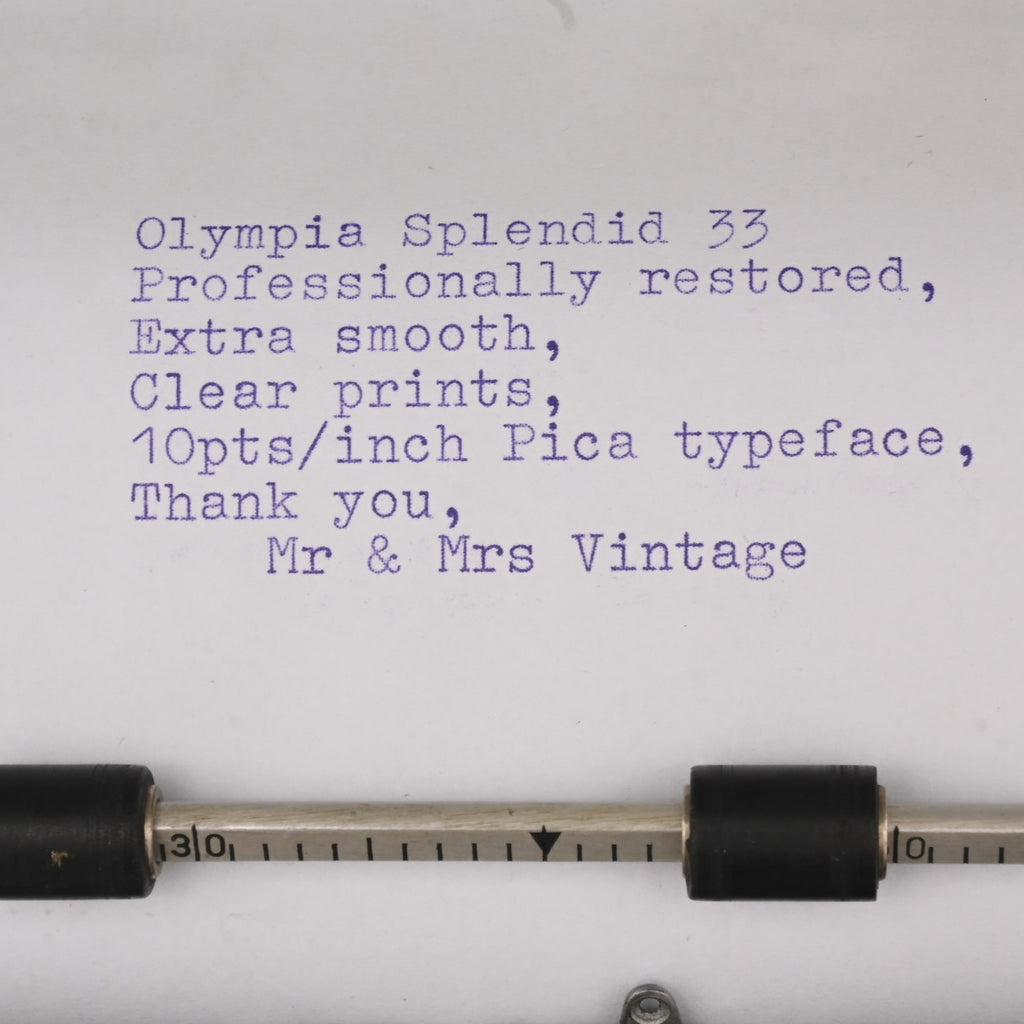 Olympia Splendid 33
Professionally restored,
Extra smooth,
Clear prints,
10pts/inch Pica typeface,
Thank you,
Mr & Mrs Vintage
30 0